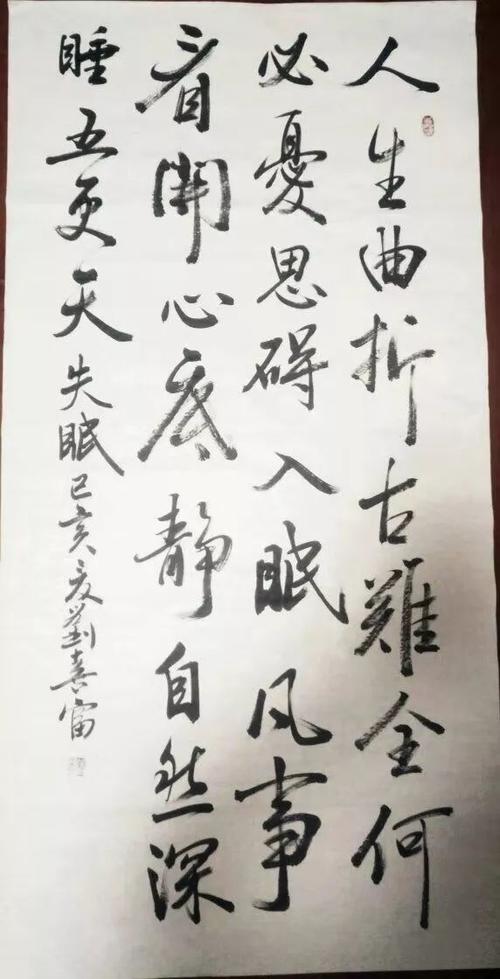 人生曲折古難全何
必憂思碍入眠凡事
看開心底静自然深
睡五更天失眠己亥夏劉喜富